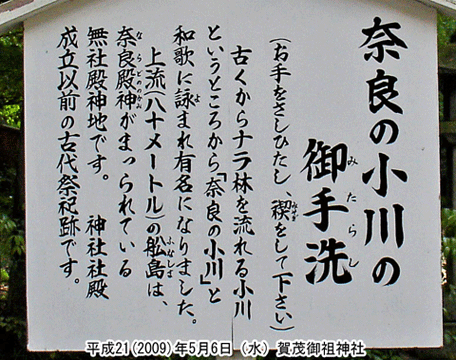 奈良の小川の
御手洗
みたらし
(お手をさしひたし、禊をして下さい)
みそぎ
古くからナラ林を流れる小川
というところから「奈良の小川」と
和歌に詠まれ有名になりました。
よ
上流(八十メートル)の舩島は、
ふなしま
奈良殿神がまつられている
ならどのかみ
無社殿神地です。 神社社殿
成立以前の古代祭祀跡です。
平成21(2009)年5月6日 (水) 賀茂御祖神社